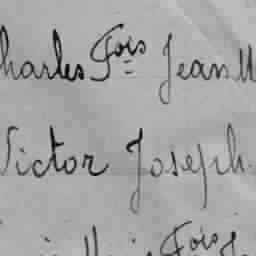 Charles Fois Jean M
Victor Joseph
Fois J